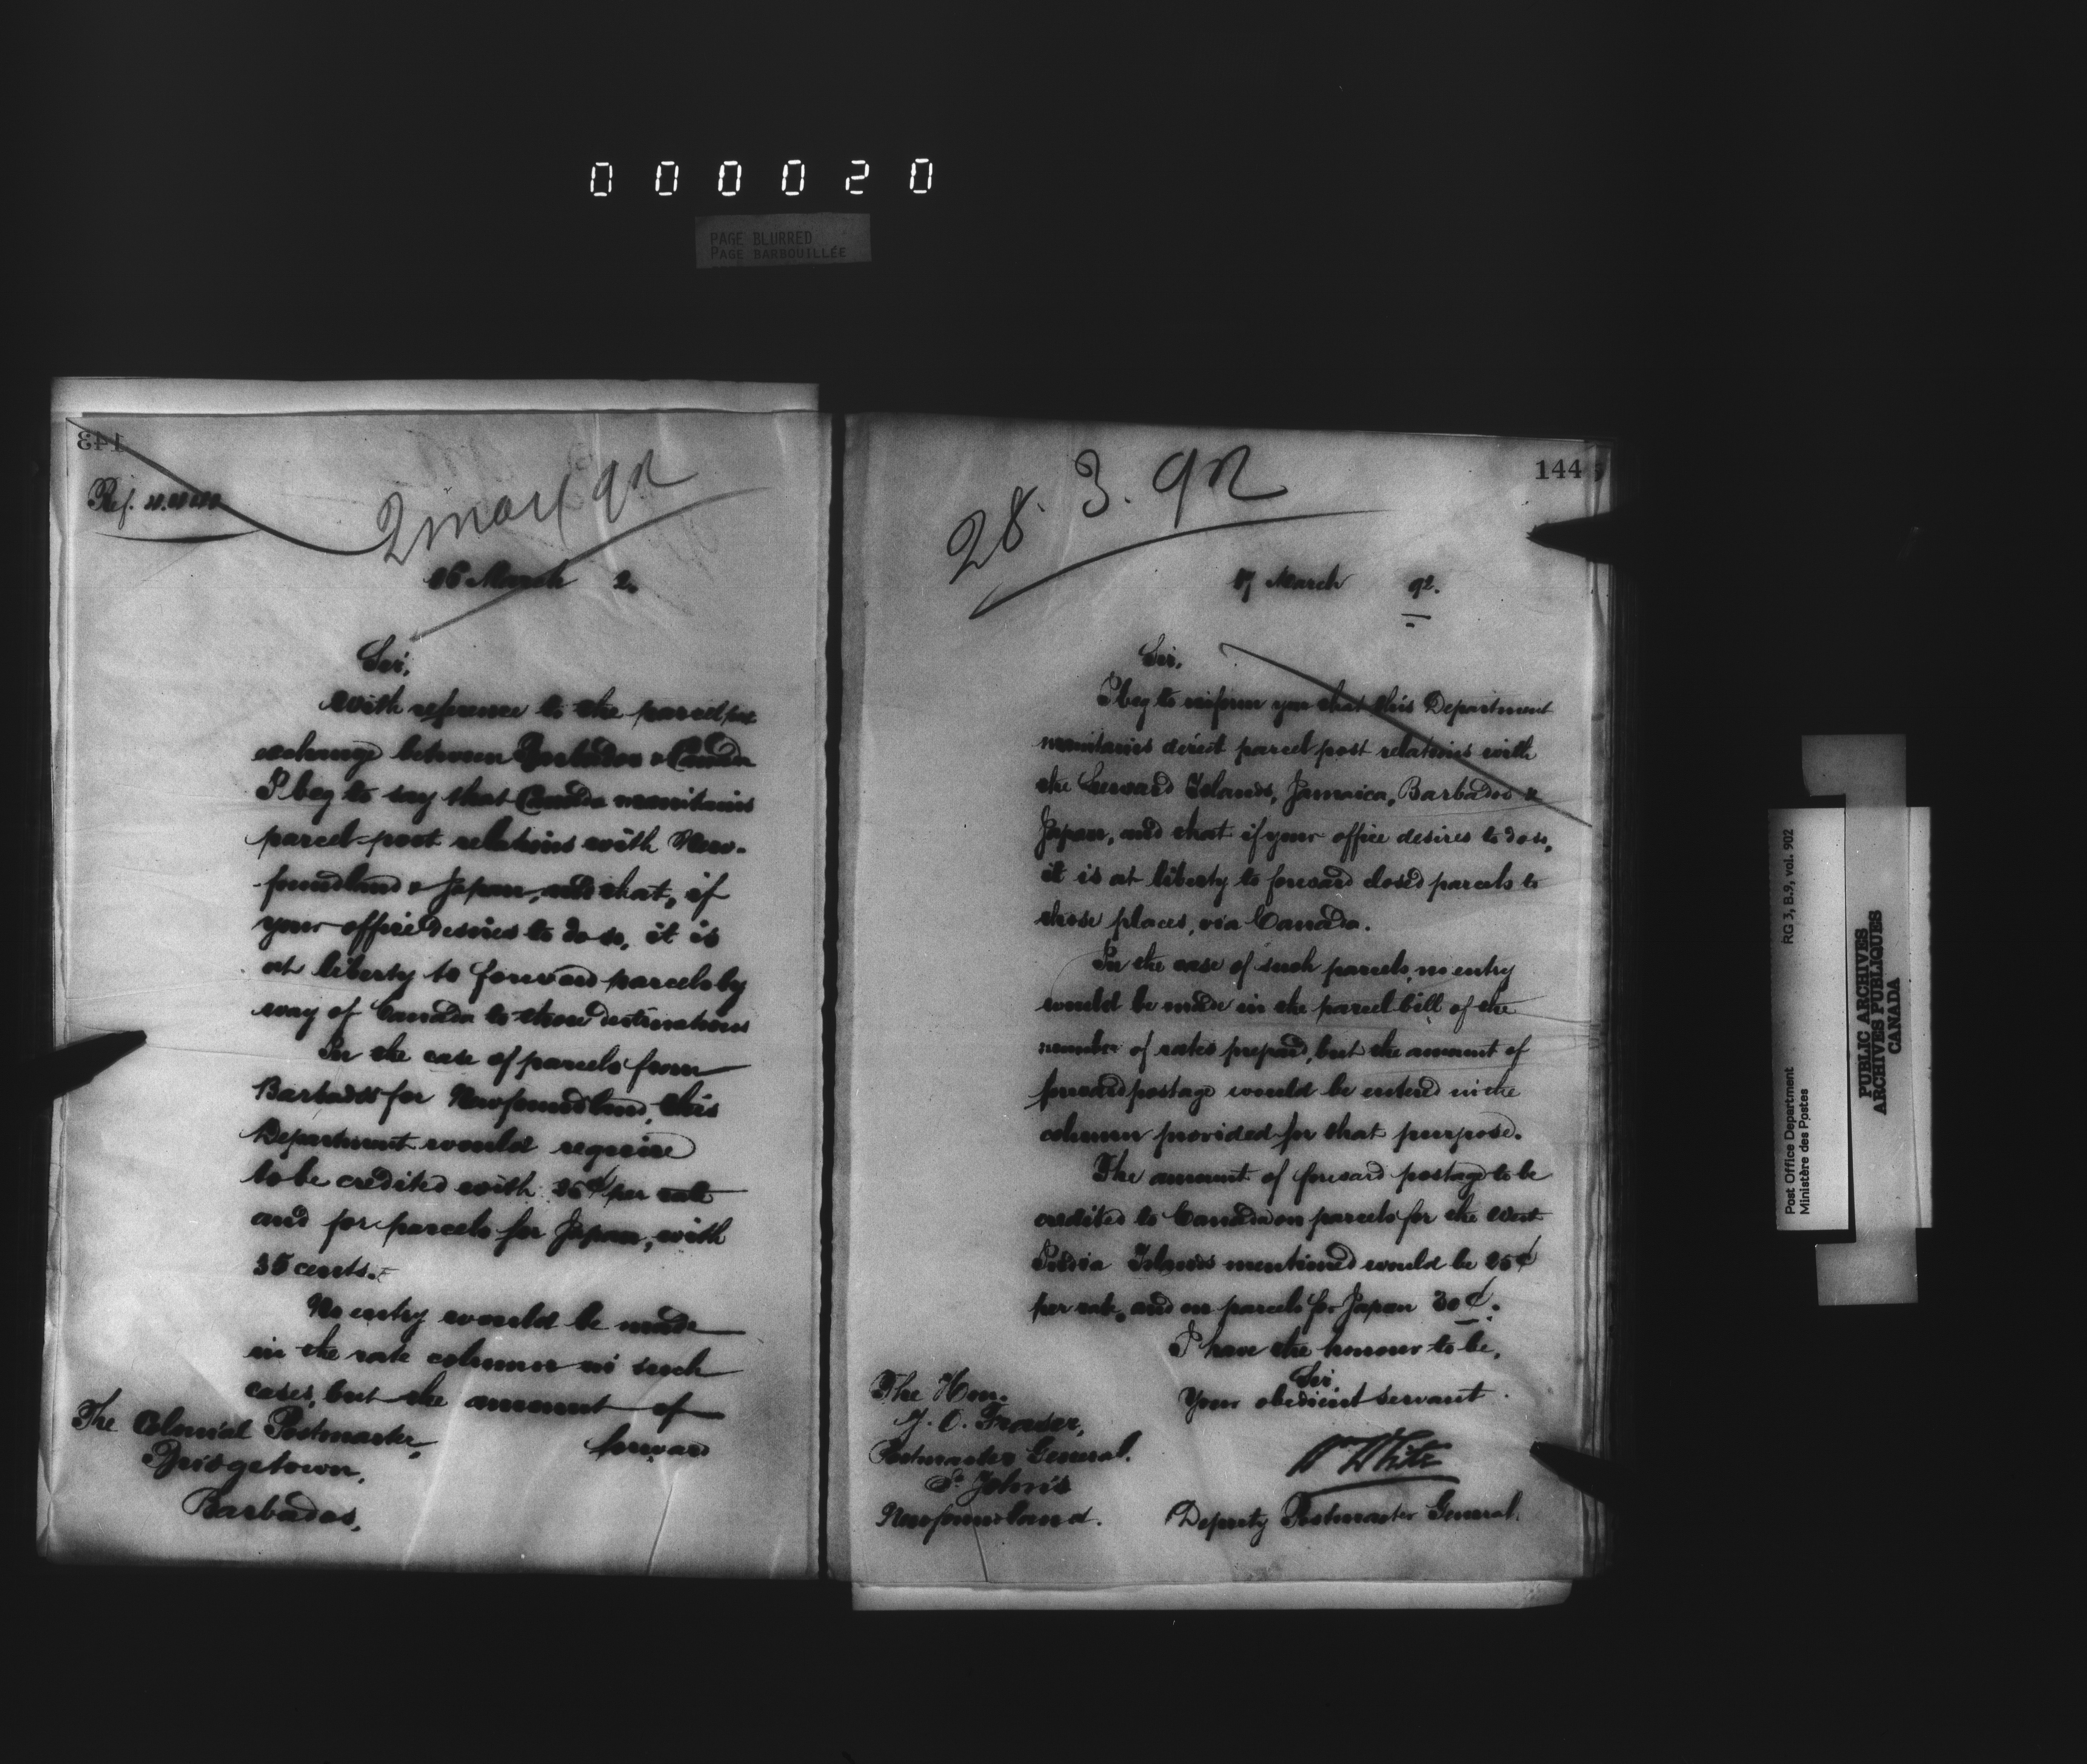 000020
PAGE BLURRED
PAGE BARBOUILLÉE
143
Ref.
2 mar 92
16 March 2.
Sir,
With reference to the parcel post
exchange between Barbados & Canada
I beg to say that Canada maintains
parcel-post relations with New-
foundland & Japan, and that, if
your office desires to do so, it is
at liberty to forward parcels by
way of Canada to those destinations
In the case of parcels from
Barbados for Newfoundland, this
Department would require
to be credited with ¢ per rate
and for parcels for Japan, with
35 cents.
No entry would be made
in the rate column in such
cases, but the amount of
forward
The Colonial Postmaster,
Bridgetown,
Barbados.
144
28. 3. 92
17 March 92.
Sir,
I beg to inform you that this Department
maintains direct parcel post relations with
the Leeward Islands, Jamaica, Barbados &
Japan, and that if your office desires to do so,
it is at liberty to forward closed parcels to
those places, via Canada.
In the case of such parcels, no entry
would be made in the parcel bill of the
number of rates prepaid, but the amount of
forward postage would be entered in the
column provided for that purpose.
The amount of forward postage to be
credited to Canada on parcels for the West
India Islands mentioned would be 25¢
per rate, and on parcels for Japan 30¢.
I have the honour to be,
Sir,
Your obedient servant
Wm White
Deputy Postmaster General.
The Hon.
J. O. Fraser,
Postmaster General.
St. John's
Newfoundland.
Post Office Department
Ministère des Postes
RG 3, B.9, vol. 902
PUBLIC ARCHIVES
ARCHIVES PUBLIQUES
CANADA